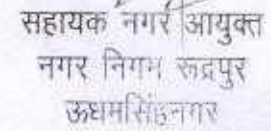 सहायक नगर आयुक्त
नगर निगम रूद्रपुर
ऊधमसिंहनगर